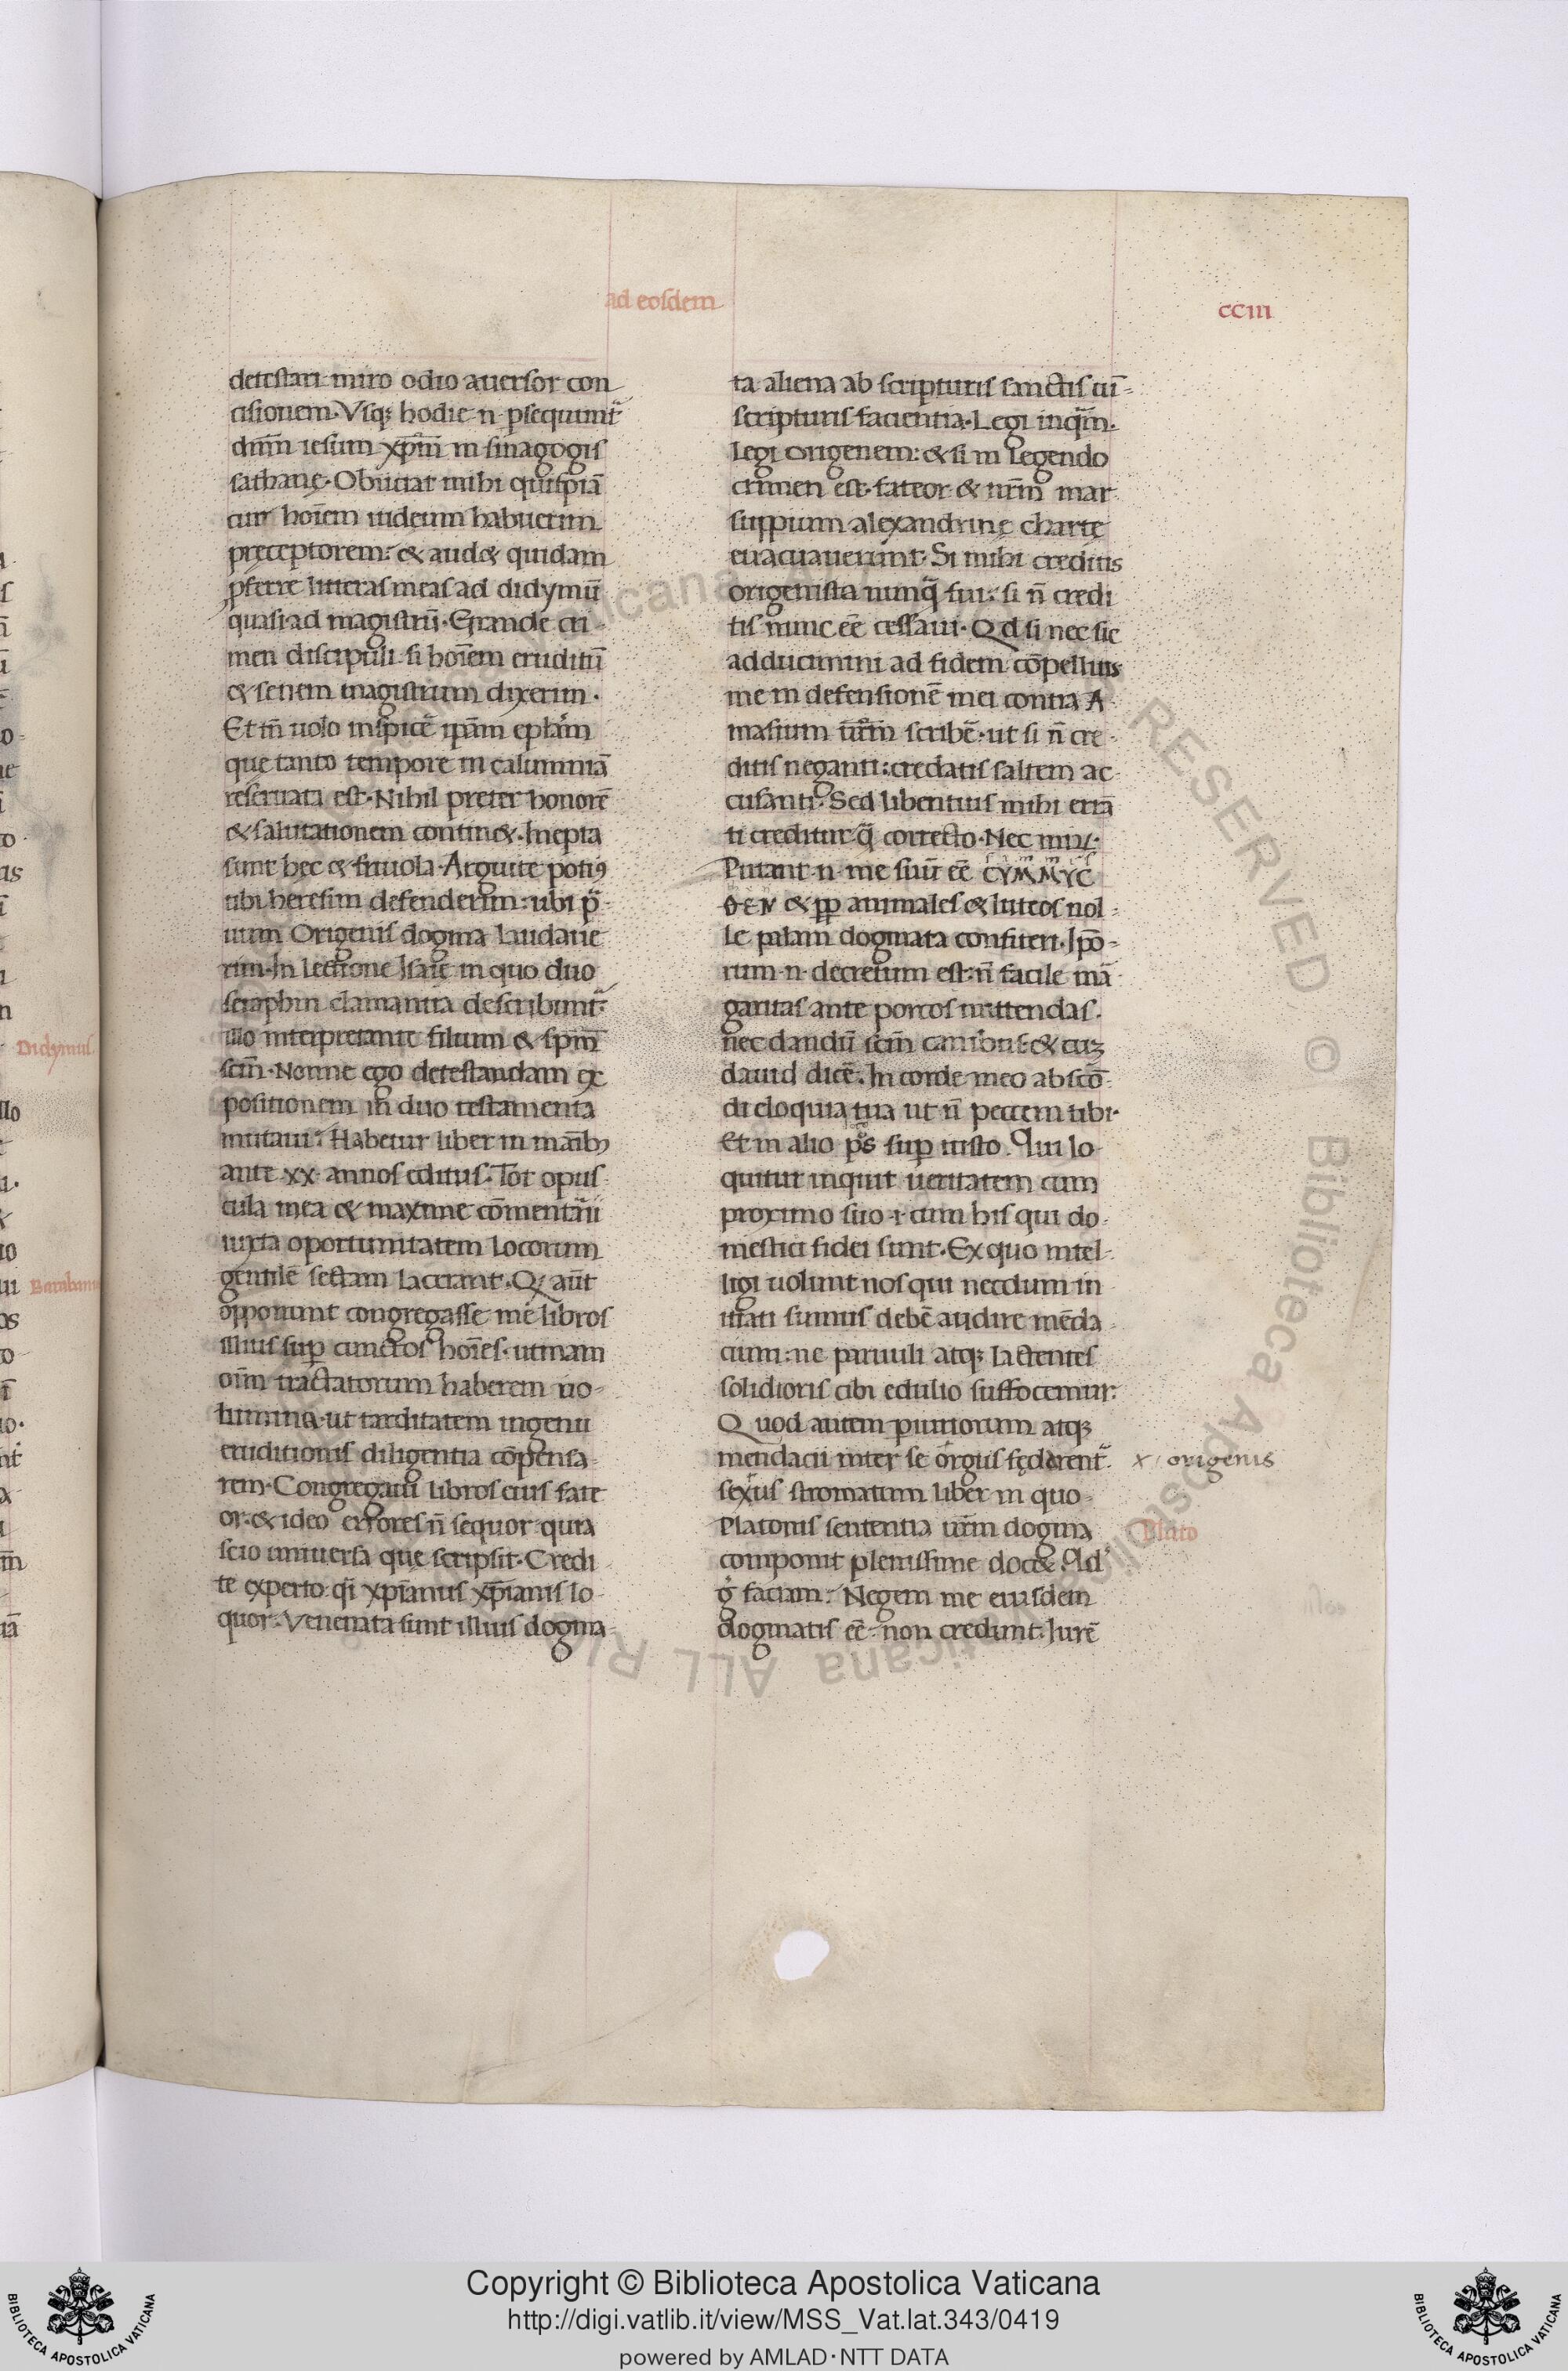 ad eosdem
cciii
detestari miro odio auersor con
cisionem. Vsq; hodie n̄ psequunt̃
dnm̄ iesum xpm̄ in sinagogis
sathanę. Obiiciat mihi quispiā
cur hoīem iudeum habuerim
preceptorem: & aud& quidam
pferre litteras meas ad didymū
quasi ad magistrū. Grande cri-
men discipuli si hoīem eruditū
& senem magistrum dixerim.
Et tn̄ uolo inspicē ipām eplām
que tanto tempore in calumniā
reseruata est. Nihil preter honorē
& salutationem contin&. Inepta
sunt hec & friuola. Arguite potiꝰ
ubi heresim defenderim: ubi p̃-
uum Origenis dogma laudaue
rim. In lectione Isaię in quo duo
seraphin clamantia describunt̃.
illo interpretante filium & spm̄
scm̄. Nonne ego detestandam ex
positionem in duo testamenta
mutaui? Habetur liber in manibꝫ
ante xx annos editus. Tot opus
cula mea & maxime cōmentarii
iuxta oportunitatem locorum
gentilē sectam lacerant. Q aūt
opponunt congregasse me libros
illius sup cunctos hoīes. utinam
oīm tractatorum haberem uo-
lumina. ut tarditatem ingenii
eruditionis diligentia cōpensa-
rem. Congregaui libros eius fate
or. & ideo errores n̄ sequor quia
scio uniuersa que scripsit. Credi
te experto. qi xpianus xpianis lo
quor. Venenata sunt illius dogma-
ta aliena ab scripturis sanctis uī-
scripturis facientia. Legi inq̃m.
legi origenem: & si in legendo
crimen est. fateor & nrm̄ mar
suppium alexandrinę chartę
euacuauerunt. Si mihi creditis
origenista nunq̃ fui. si n̄ credi
tis nunc eē cessaui. Qd si nec sic
adducimini ad fidem cōpellitis
me in defensionē mei contra A
masium ur̄m scribē. ut si n̄ cre-
ditis neganti: credatis saltem ac
cusanti. Sed libentius mihi errā
ti creditur q̃ correcto. Nec mir.
Putant n̄ me suū eē CYMMYC
ΘEN & pp animales & luteos nol-
le palam dogmata confiteri. Ipō-
rum n̄ decretum est: n̄ facile mā
garitas ante porcos mittendas.
nec dandū scm̄ canibus: & cuz
dauid dicē. In corde meo abscō-
di eloquia tua ut n̄ peccem tibi.
Et in alio ps sup iusto. Qui lo
quitur inquit ueritatem cum
proximo suo .i. cum his qui do-
mestici fidei sunt. Ex quo intel-
ligi uolunt nos qui necdum in
itiati sumus debē audire mēda
cium: ne paruuli atq; lactentes
solidioris cibi edulio suffocemur.
Quod autem piuriorum atq;
mendacii inter se orgiis fęderent̃.
sextus stromatum liber in quo
Platonis sententia nrm̄ dogma
componit plenissime doc&. Qd
g̊ faciam? Negem me eiusdem
dogmatis eē? non credunt. Iurē
x origenis
Plato
Didymus